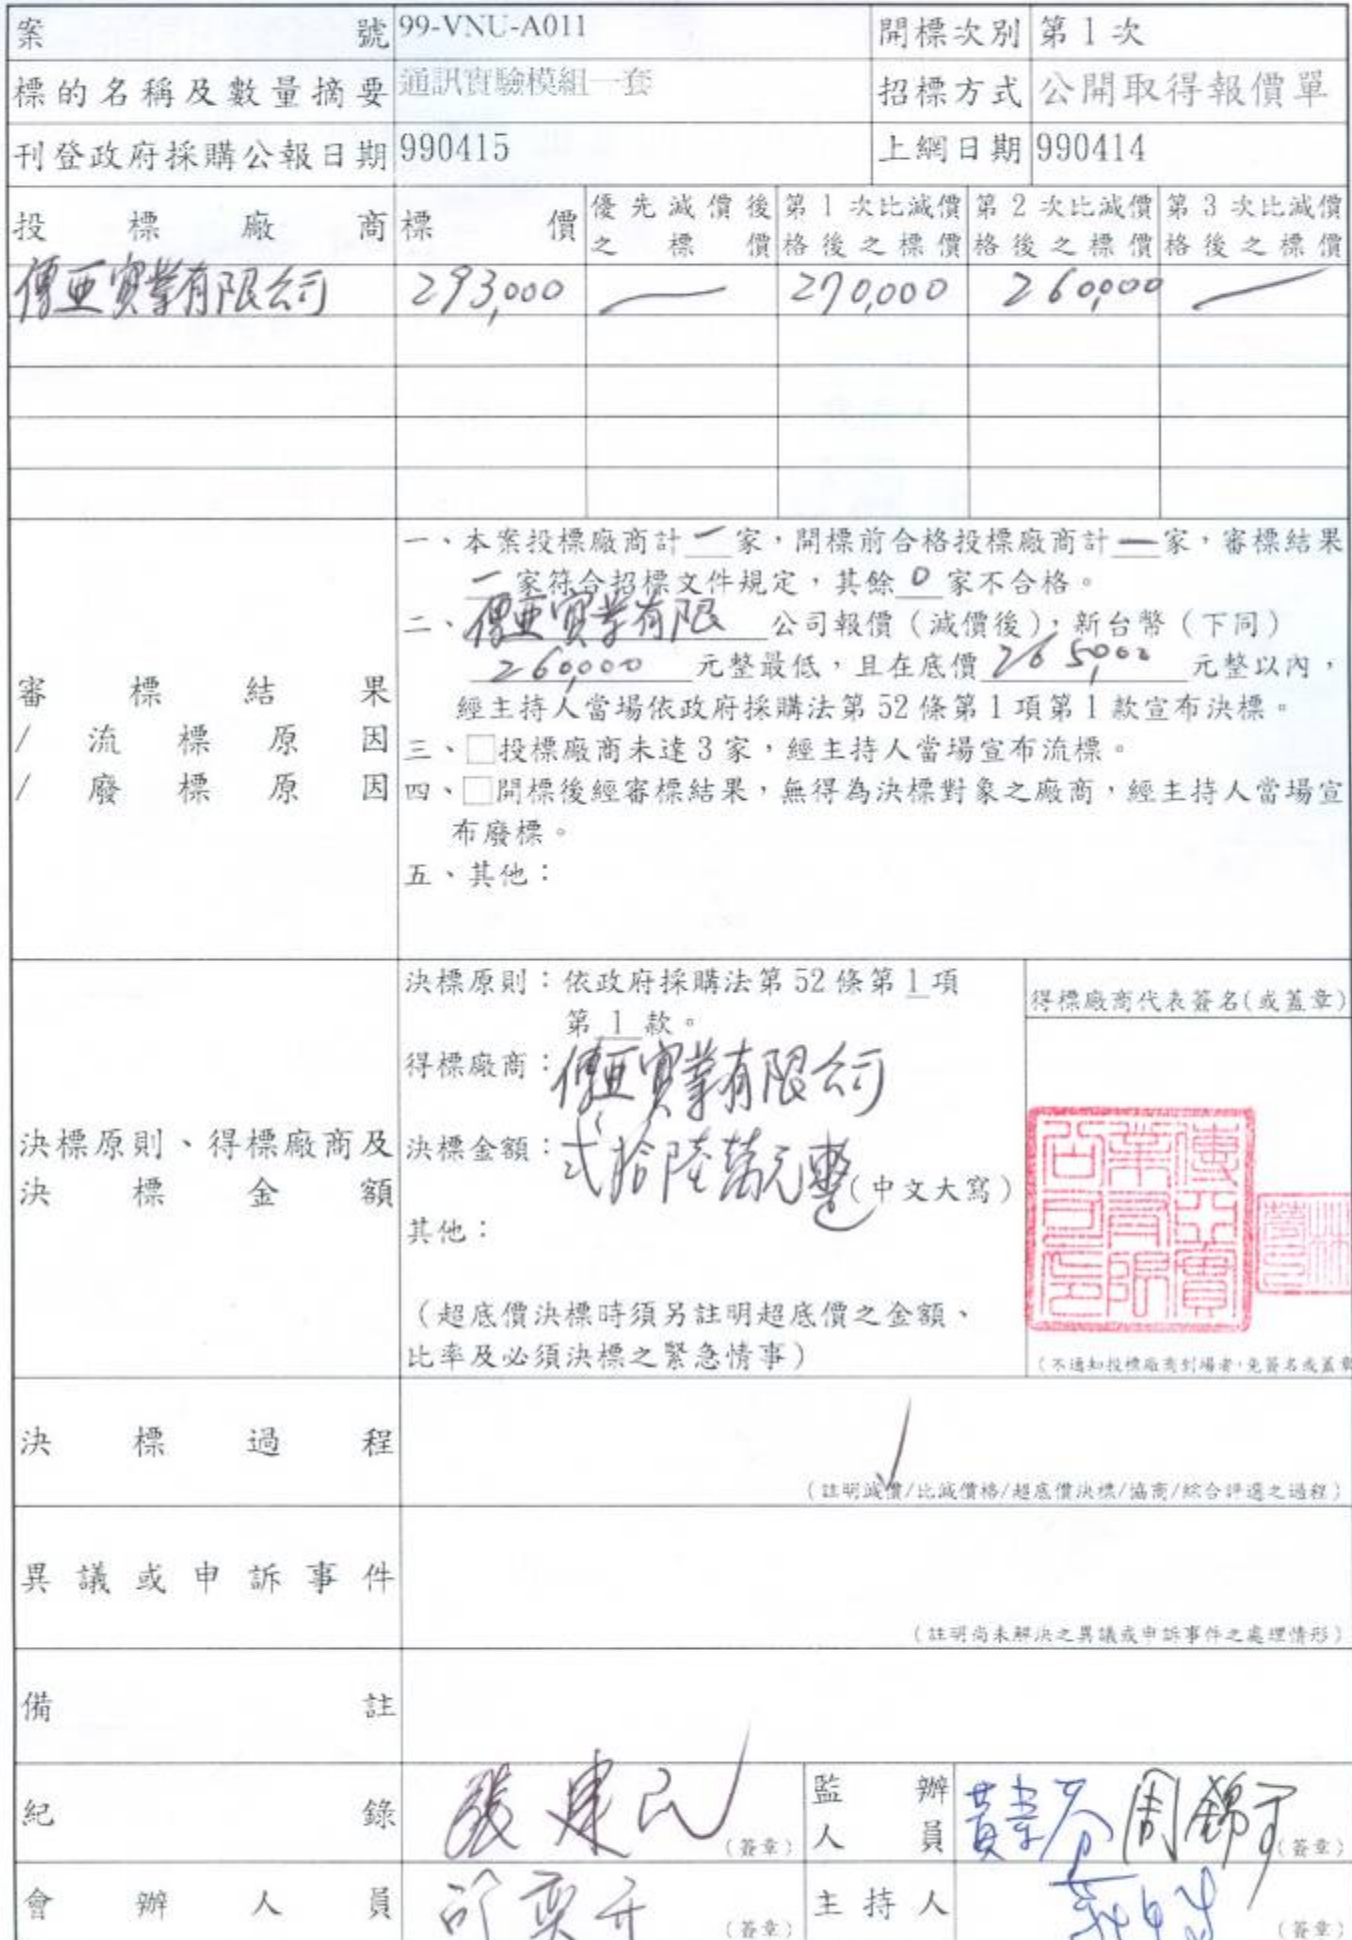 案號 99-VNU-A011 開標次別 第1次
標的名稱及數量摘要 通訊實驗模組一套 招標方式 公開取得報價單
刊登政府採購公報日期 990415 上網日期 990414
投標廠商 標價 優先減價後之標價 第1次比減價格後之標價 第2次比減價格後之標價 第3次比減價格後之標價
傳亞實業有限公司 293,000 — 270,000 260,000 —
審標結果
/流標原因
/廢標原因
一、本案投標廠商計一家，開標前合格投標廠商計一家，審標結果
一家符合招標文件規定，其餘0家不合格。
二、傳亞實業有限公司報價（減價後），新台幣（下同）
260,000元整最低，且在底價265,000元整以內，
經主持人當場依政府採購法第52條第1項第1款宣布決標。
三、□投標廠商未達3家，經主持人當場宣布流標。
四、□開標後經審標結果，無得為決標對象之廠商，經主持人當場宣
布廢標。
五、其他：
決標原則、得標廠商及
決標金額
決標原則：依政府採購法第52條第1項
第1款。
得標廠商：傳亞實業有限公司
決標金額：弍拾陸萬元整(中文大寫)
其他：
（超底價決標時須另註明超底價之金額、
比率及必須決標之緊急情事）
得標廠商代表簽名(或蓋章)
傳亞實業有限公司印
（不通知投標廠商到場者，免簽名或蓋章
決標過程
（註明減價/比減價格/超底價決標/協商/綜合評選之過程）
異議或申訴事件
（註明尚未解決之異議或申訴事件之處理情形）
備註
紀錄 張建民 （簽章） 監辦人員 （簽章）
會辦人員 （簽章） 主持人 （簽章）